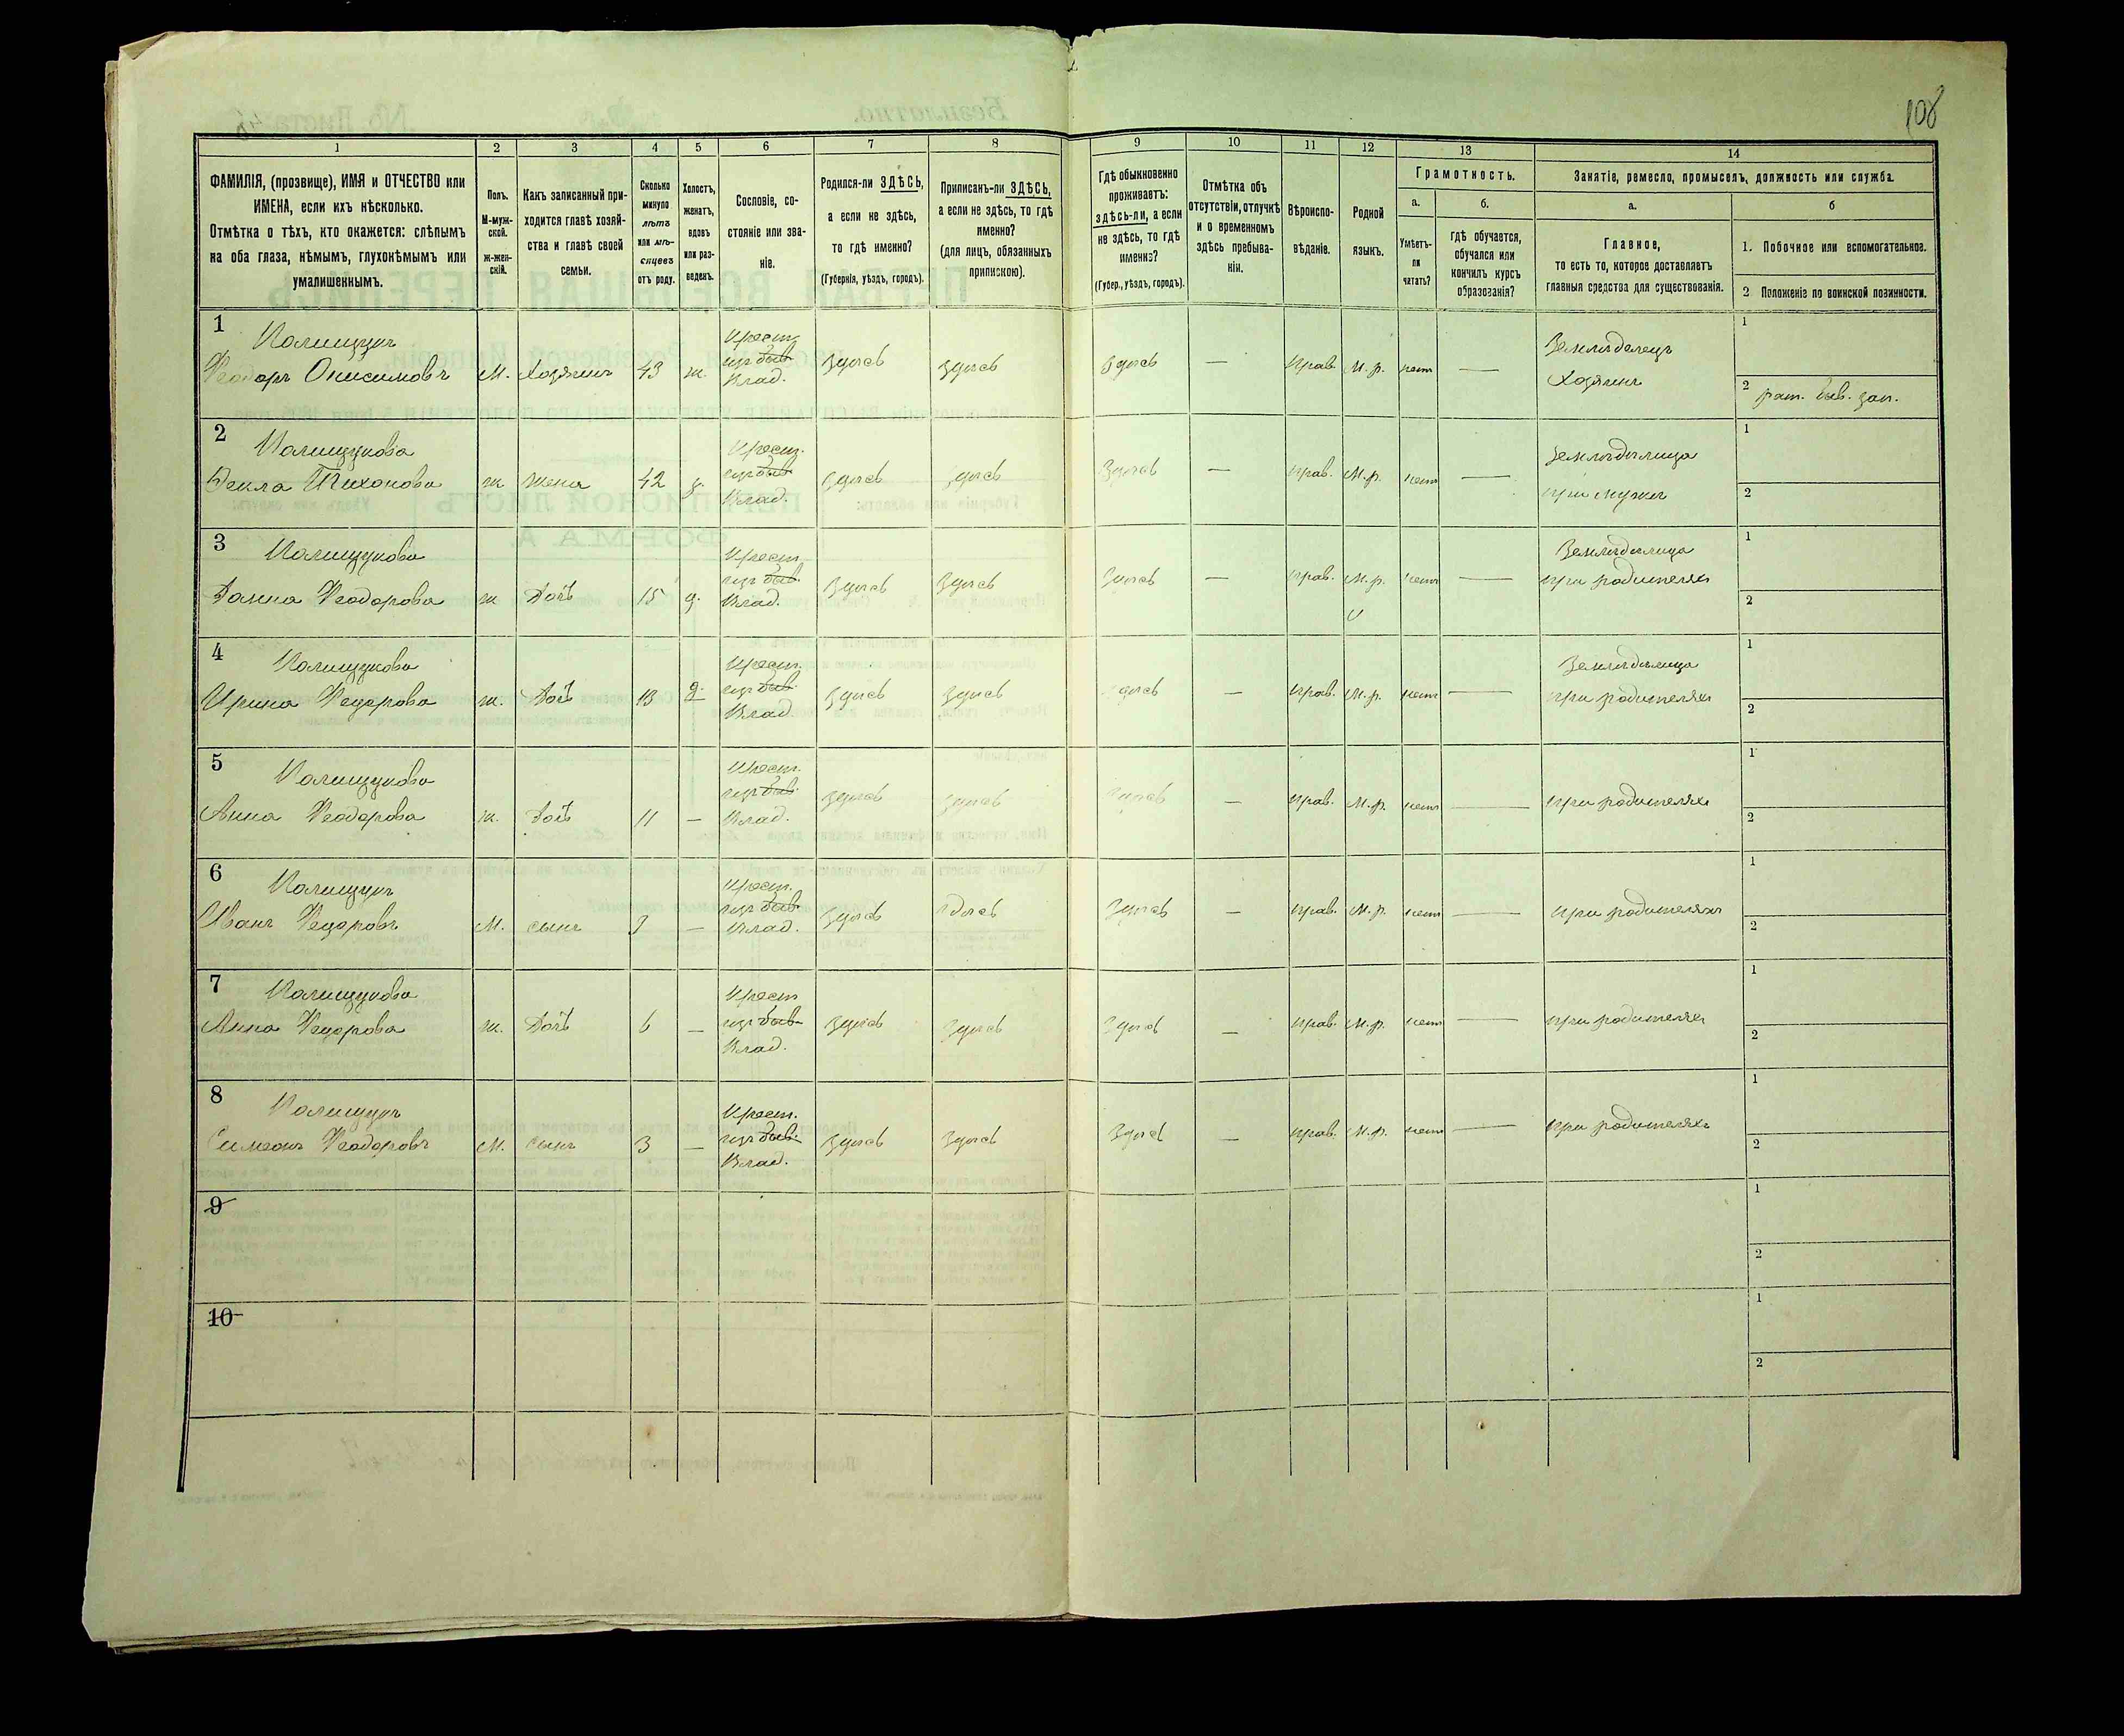 108
1
2
3
4
5
6
7
8
9
10
11
12
13
14
ФАМИЛІЯ, (прозвище), ИМЯ и ОТЧЕСТВО или
ИМЕНА, если ихъ нѣсколько.
Отмѣтка о тѣхъ, кто окажется: слѣпымъ
на оба глаза, нѣмымъ, глухонѣмымъ или
умалишеннымъ.
Полъ.
М-муж-
ской.
ж-жен-
скій.
Какъ записанный при-
ходится главѣ хозяй-
ства и главѣ своей
семьи.
Сколько
минуло
лѣтъ
или мѣ-
сяцевъ
отъ роду.
Холостъ,
женатъ,
вдовъ
или раз-
веденъ.
Сословіе, со-
стояніе или зва-
ніе.
Родился-ли ЗДѢСЬ,
а если не здѣсь,
то гдѣ именно?
(Губернія, уѣздъ, городъ).
Приписанъ-ли ЗДѢСЬ,
а если не здѣсь, то гдѣ
именно?
(для лицъ, обязанныхъ
припискою).
Гдѣ обыкновенно
проживаетъ:
здѣсь-ли, а если
не здѣсь, то гдѣ
именно?
(Губер., уѣздъ, городъ).
Отмѣтка объ
отсутствіи, отлучкѣ
и о временномъ
здѣсь пребыва-
ніи.
Вѣроиспо-
вѣданіе.
Родной
языкъ.
Грамотность.
а.
Умѣетъ-
ли
читать?
б.
гдѣ обучается,
обучался или
кончилъ курсъ
образованія?
Занятіе, ремесло, промыселъ, должность или служба.
а.
Главное,
то есть то, которое доставляетъ
главныя средства для существованія.
б
1. Побочное или вспомогательное.
2 Положеніе по воинской повинности.
1
Полищукъ
Феодоръ Онисимовъ
М. Хозяинъ 43 ж.
Крест.
изъ быв.
Влад.
здѣсь здѣсь здѣсь — прав. М. р. нетъ —
Земледелецъ
Хозяинъ
1
2 рат. быв. зап.
2
Полищукова
Фекла Тихонова
ж жена 42 з.
Крест.
изъ быв.
Влад.
здѣсь здѣсь здѣсь — прав. М. р. нетъ —
Земледѣлица
при мужѣ
1
2
3
Полищукова
Домна Феодорова
ж Дочь 15 д.
Крест.
изъ быв.
Влад.
здѣсь здѣсь здѣсь — прав. М. р. нетъ —
Земледѣлица
при родителяхъ
1
2
4
Полищукова
Ирина Федорова
ж. Дочь 13 д.
Крест.
изъ быв.
Влад.
здѣсь здѣсь здѣсь — прав. М. р. нетъ —
Земледѣлица
при родителяхъ
1
2
5
Полищукова
Анна Феодорова
ж. Дочь 11 —
Крест.
изъ быв.
Влад.
здѣсь здѣсь здѣсь — прав. М. р. нетъ —
при родителяхъ
1
2
6
Полищукъ
Иванъ Федоровъ
М. сынъ —
Крест.
изъ быв.
Влад.
здѣсь здѣсь здѣсь — прав. М. р. нетъ —
при родителяхъ
1
2
7
Полищукова
Анна Федорова
ж. Дочь 6 —
Крест.
изъ быв.
Влад.
здѣсь здѣсь здѣсь — прав. М. р. нетъ —
при родителяхъ
1
2
8
Полищукъ
Симеонъ Феодоровъ
М. сынъ 3 —
Крест.
изъ быв.
Влад.
здѣсь здѣсь здѣсь — прав. М. р. нетъ —
при родителяхъ
1
2
9
1
2
10
1
2